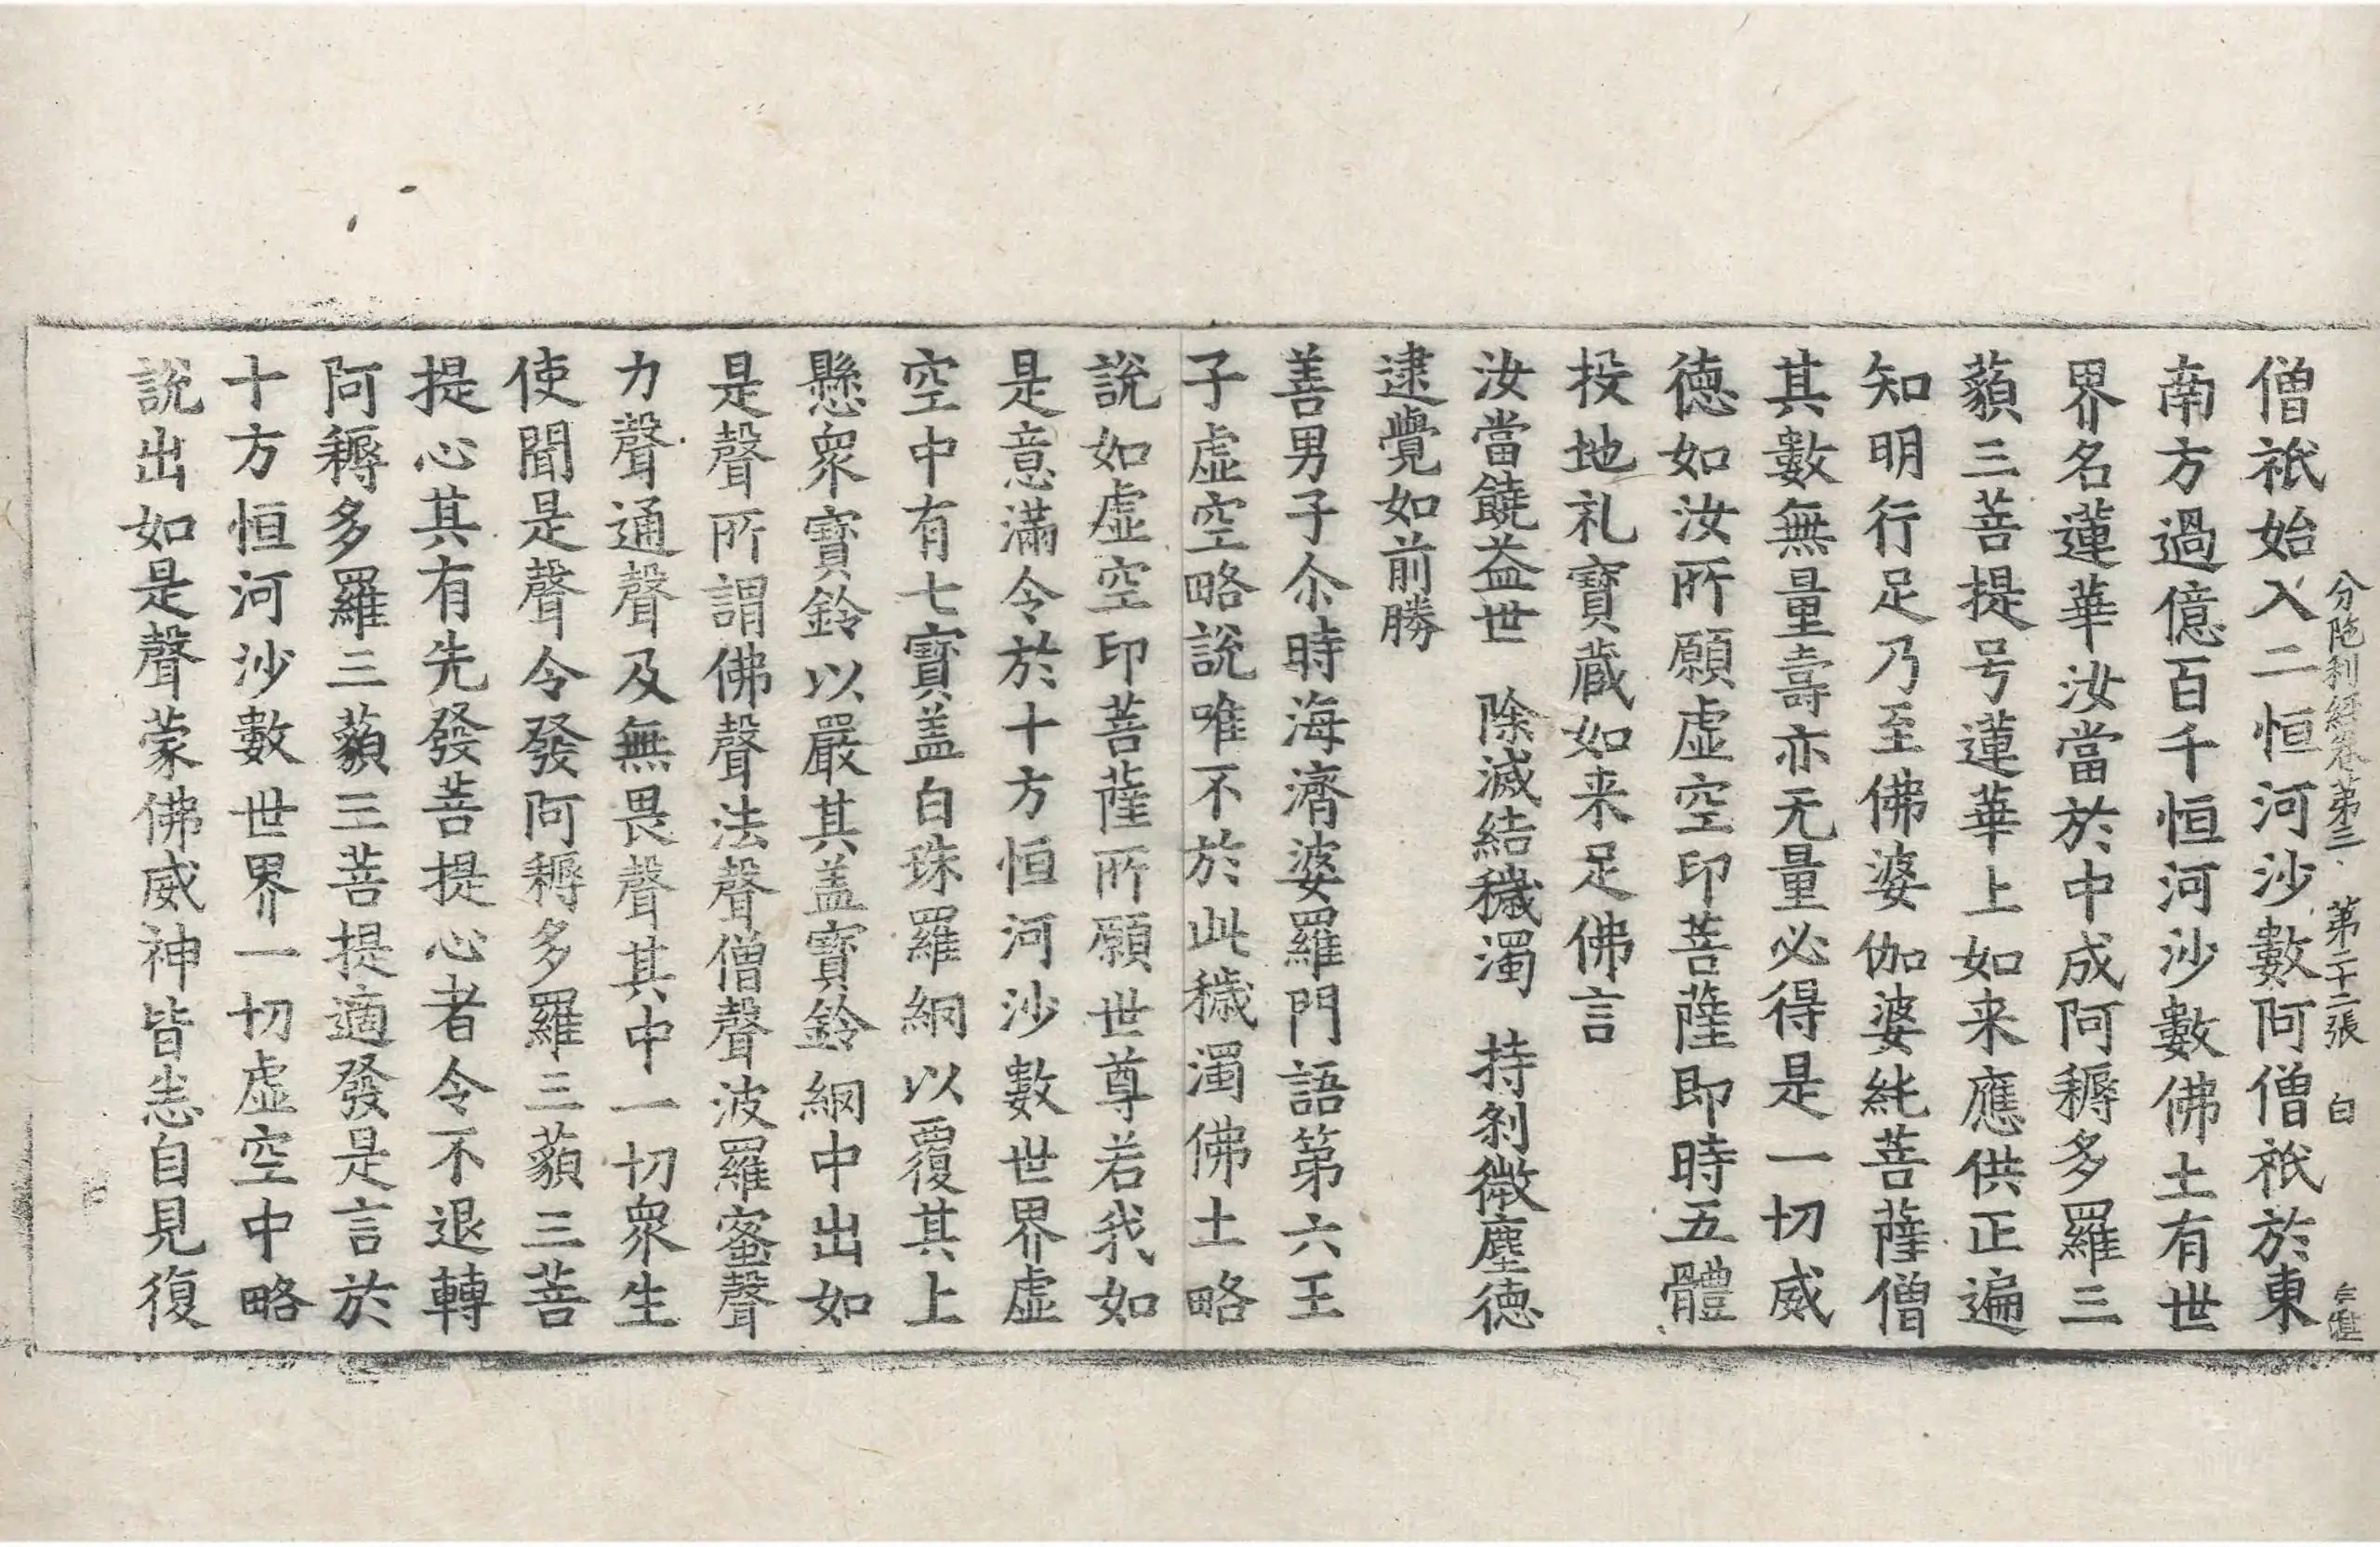 分陁利經卷第三 第二十二張 白
僧祇始入二恒河沙數阿僧祇於東
南方過億百千恒河沙數佛土有世
界名蓮華汝當於中成阿耨多羅三
藐三菩提号蓮華上如来應供正遍
知明行足乃至佛婆伽婆純菩薩僧
其數無量壽亦无量必得是一切威
德如汝所願虛空印菩薩即時五體
投地礼寶藏如来足佛言
汝當饒益世 除滅結穢濁 持剎微塵德
逮覺如前勝
善男子尒時海濟婆羅門語第六王
子虛空略說唯不於此穢濁佛土略
說如虛空印菩薩所願世尊若我如
是意滿令於十方恒河沙數世界虛
空中有七寶盖白珠羅網以覆其上
懸衆寶鈴以嚴其盖寶鈴網中出如
是聲所謂佛聲法聲僧聲波羅蜜聲
力聲通聲及無畏聲其中一切衆生
使聞是聲令發阿耨多羅三藐三菩
提心其有先發菩提心者令不退轉
阿耨多羅三藐三菩提適發是言於
十方恒河沙數世界一切虛空中略
說出如是聲蒙佛威神皆悉自見復